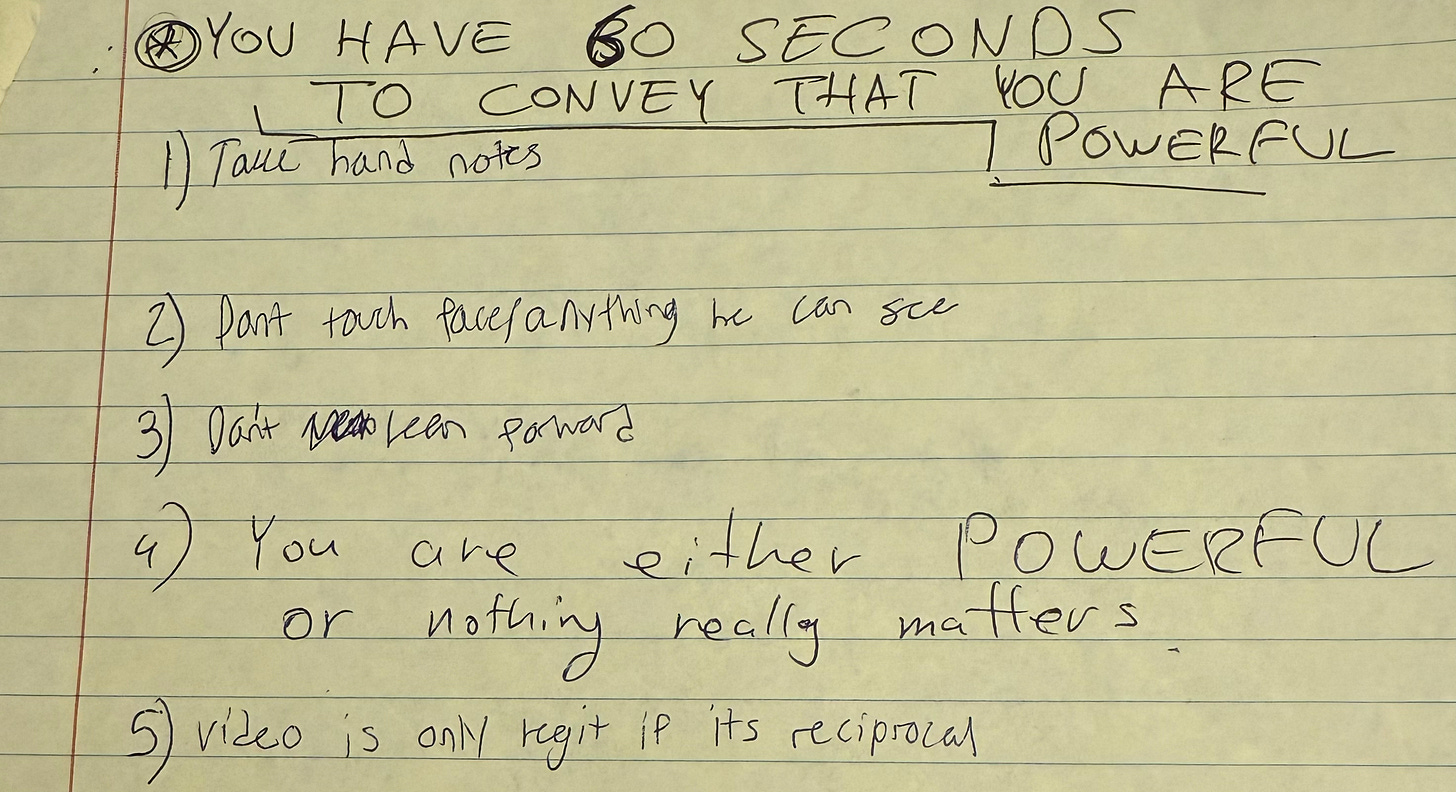 ⊛ YOU HAVE 60 SECONDS
TO CONVEY THAT YOU ARE
POWERFUL
1) Take hand notes
2) Dont touch face/anything he can see
3) Don't leen forward
4) You are either POWERFUL
or nothing really matters.
5) video is only legit if its reciprocal